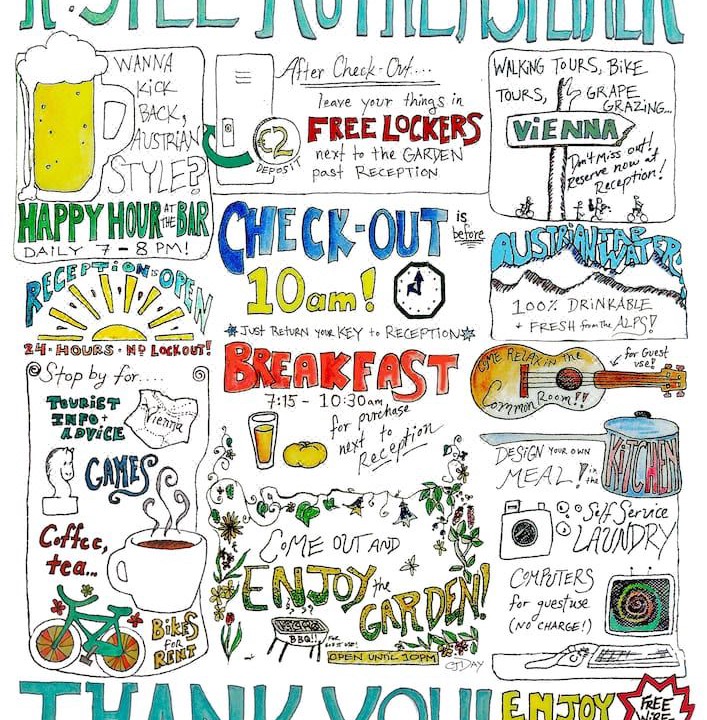 WANNA
KICK
BACK,
AUSTRIAN
STYLE?
HAPPY HOUR AT THE BAR
DAILY 7 - 8 PM!
After Check-Out....
leave your things in
FREE LOCKERS
next to the GARDEN
past RECEPTION
€2
DEPOSIT
WALKING TOURS, BIKE
TOURS, GRAPE
GRAZING...
VIENNA
Don't miss out!
Reserve now at
Reception!
CHECK-OUT is
before
10am!
*JUST RETURN YOUR KEY to RECEPTION*
AUSTRIAN TAP
WATER
100% DRINKABLE
+ FRESH from the ALPS!
RECEPTION IS OPEN
24 · HOURS · NO LOCKOUT!
BREAKFAST
7:15 - 10:30am,
for purchase
next to
Reception
COME RELAX in the
Common Room!!
for Guest
use!
Stop by for....
TOURIST
INFO +
ADVICE
Vienna
GAMES
Coffee,
tea...
BIKES
FOR
RENT
DESIGN YOUR OWN
MEAL! in the
KITCHEN
Self Service
LAUNDRY
COMPUTERS
for guest use
(NO CHARGE!)
COME OUT AND
ENJOY the
GARDEN!
BBQ!!
OPEN UNTIL 10PM
CJDAY
THANK YOU!
ENJOY
FREE